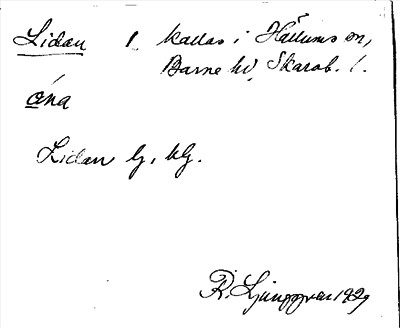 Lidan 1 kallas i Hällums sn,
Barne hd, Skarab. l.
ána
Lidan lj, klj.
R. Ljunggren 1929